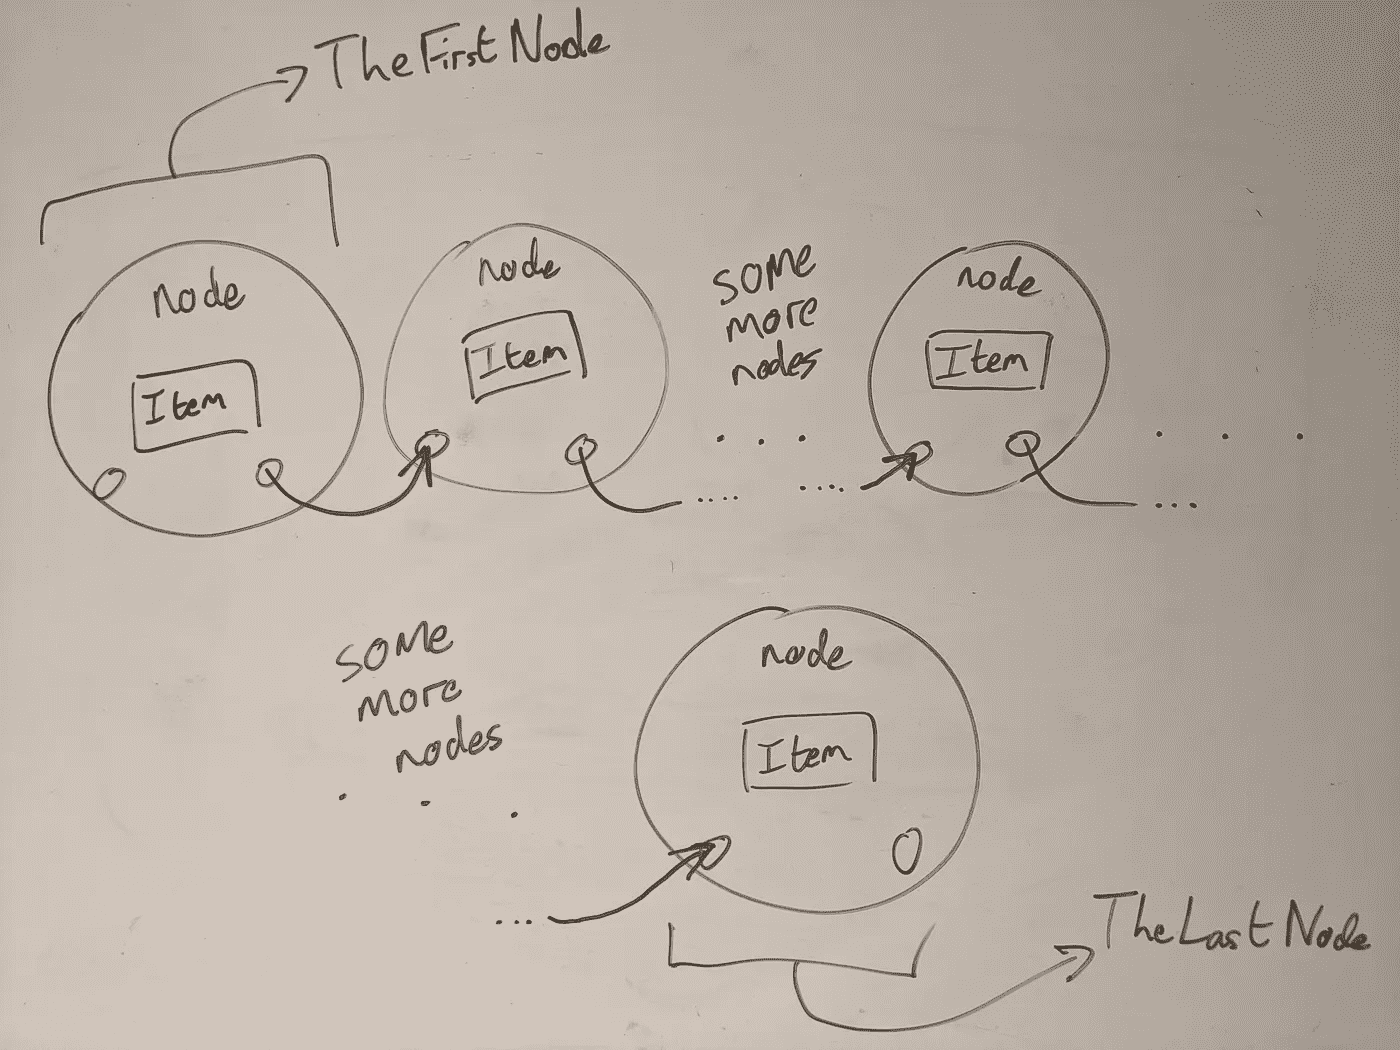 TheFirstNode
node
Item
node
Item
some
more
nodes
. . .
..... .....
node
Item
. . .
....
some
more
nodes
. . .
...
node
Item
TheLastNode